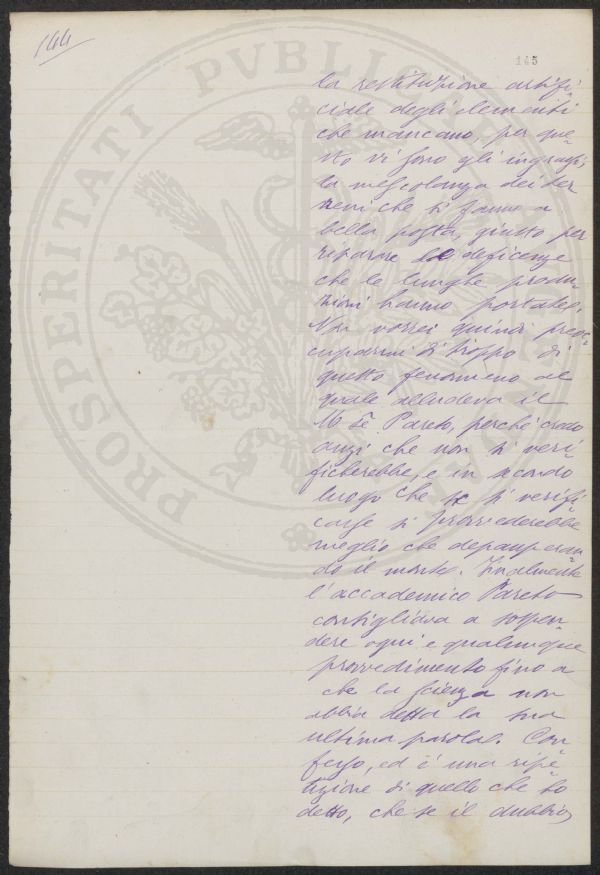 144
145
la restituzione artifi-
ciale degli elementi
che mancano, per que-
sto vi sono gli ingrassi,
la mescolanza dei ter-
reni che si fanno a
bella posta, giusto per
riparare le deficenze
che le lunghe produ-
zioni hanno portate.
Non vorrei quindi preoc-
cuparmi di troppo di
questo fenomeno al
quale alludeva il
Mse Pareto, perchè credo
anzi che non si veri-
ficherebbe, e in secondo
luogo che se si verifi-
casse si provvederebbe
meglio che depauperan-
do il monte. Finalmente
l'accademico Pareto
consigliava a sospen-
dere ogni e qualunque
provvedimento fino a
che la scienza non
abbia detta la sua
ultima parola. Con-
fesso, ed è una ripe-
tizione di quello che ho
detto, che se il dubbio
PROSPERITATI PVBLIC